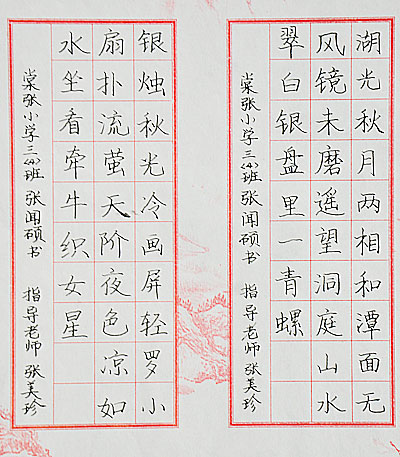 湖光秋月两相和潭面无
风镜未磨遥望洞庭山水
翠白银盘里一青螺
棠张小学三(4)班 张闻硕书 指导老师 张美珍
银烛秋光冷画屏轻罗小
扇扑流萤天阶夜色凉如
水坐看牵牛织女星
棠张小学三(4)班 张闻硕书 指导老师 张美珍